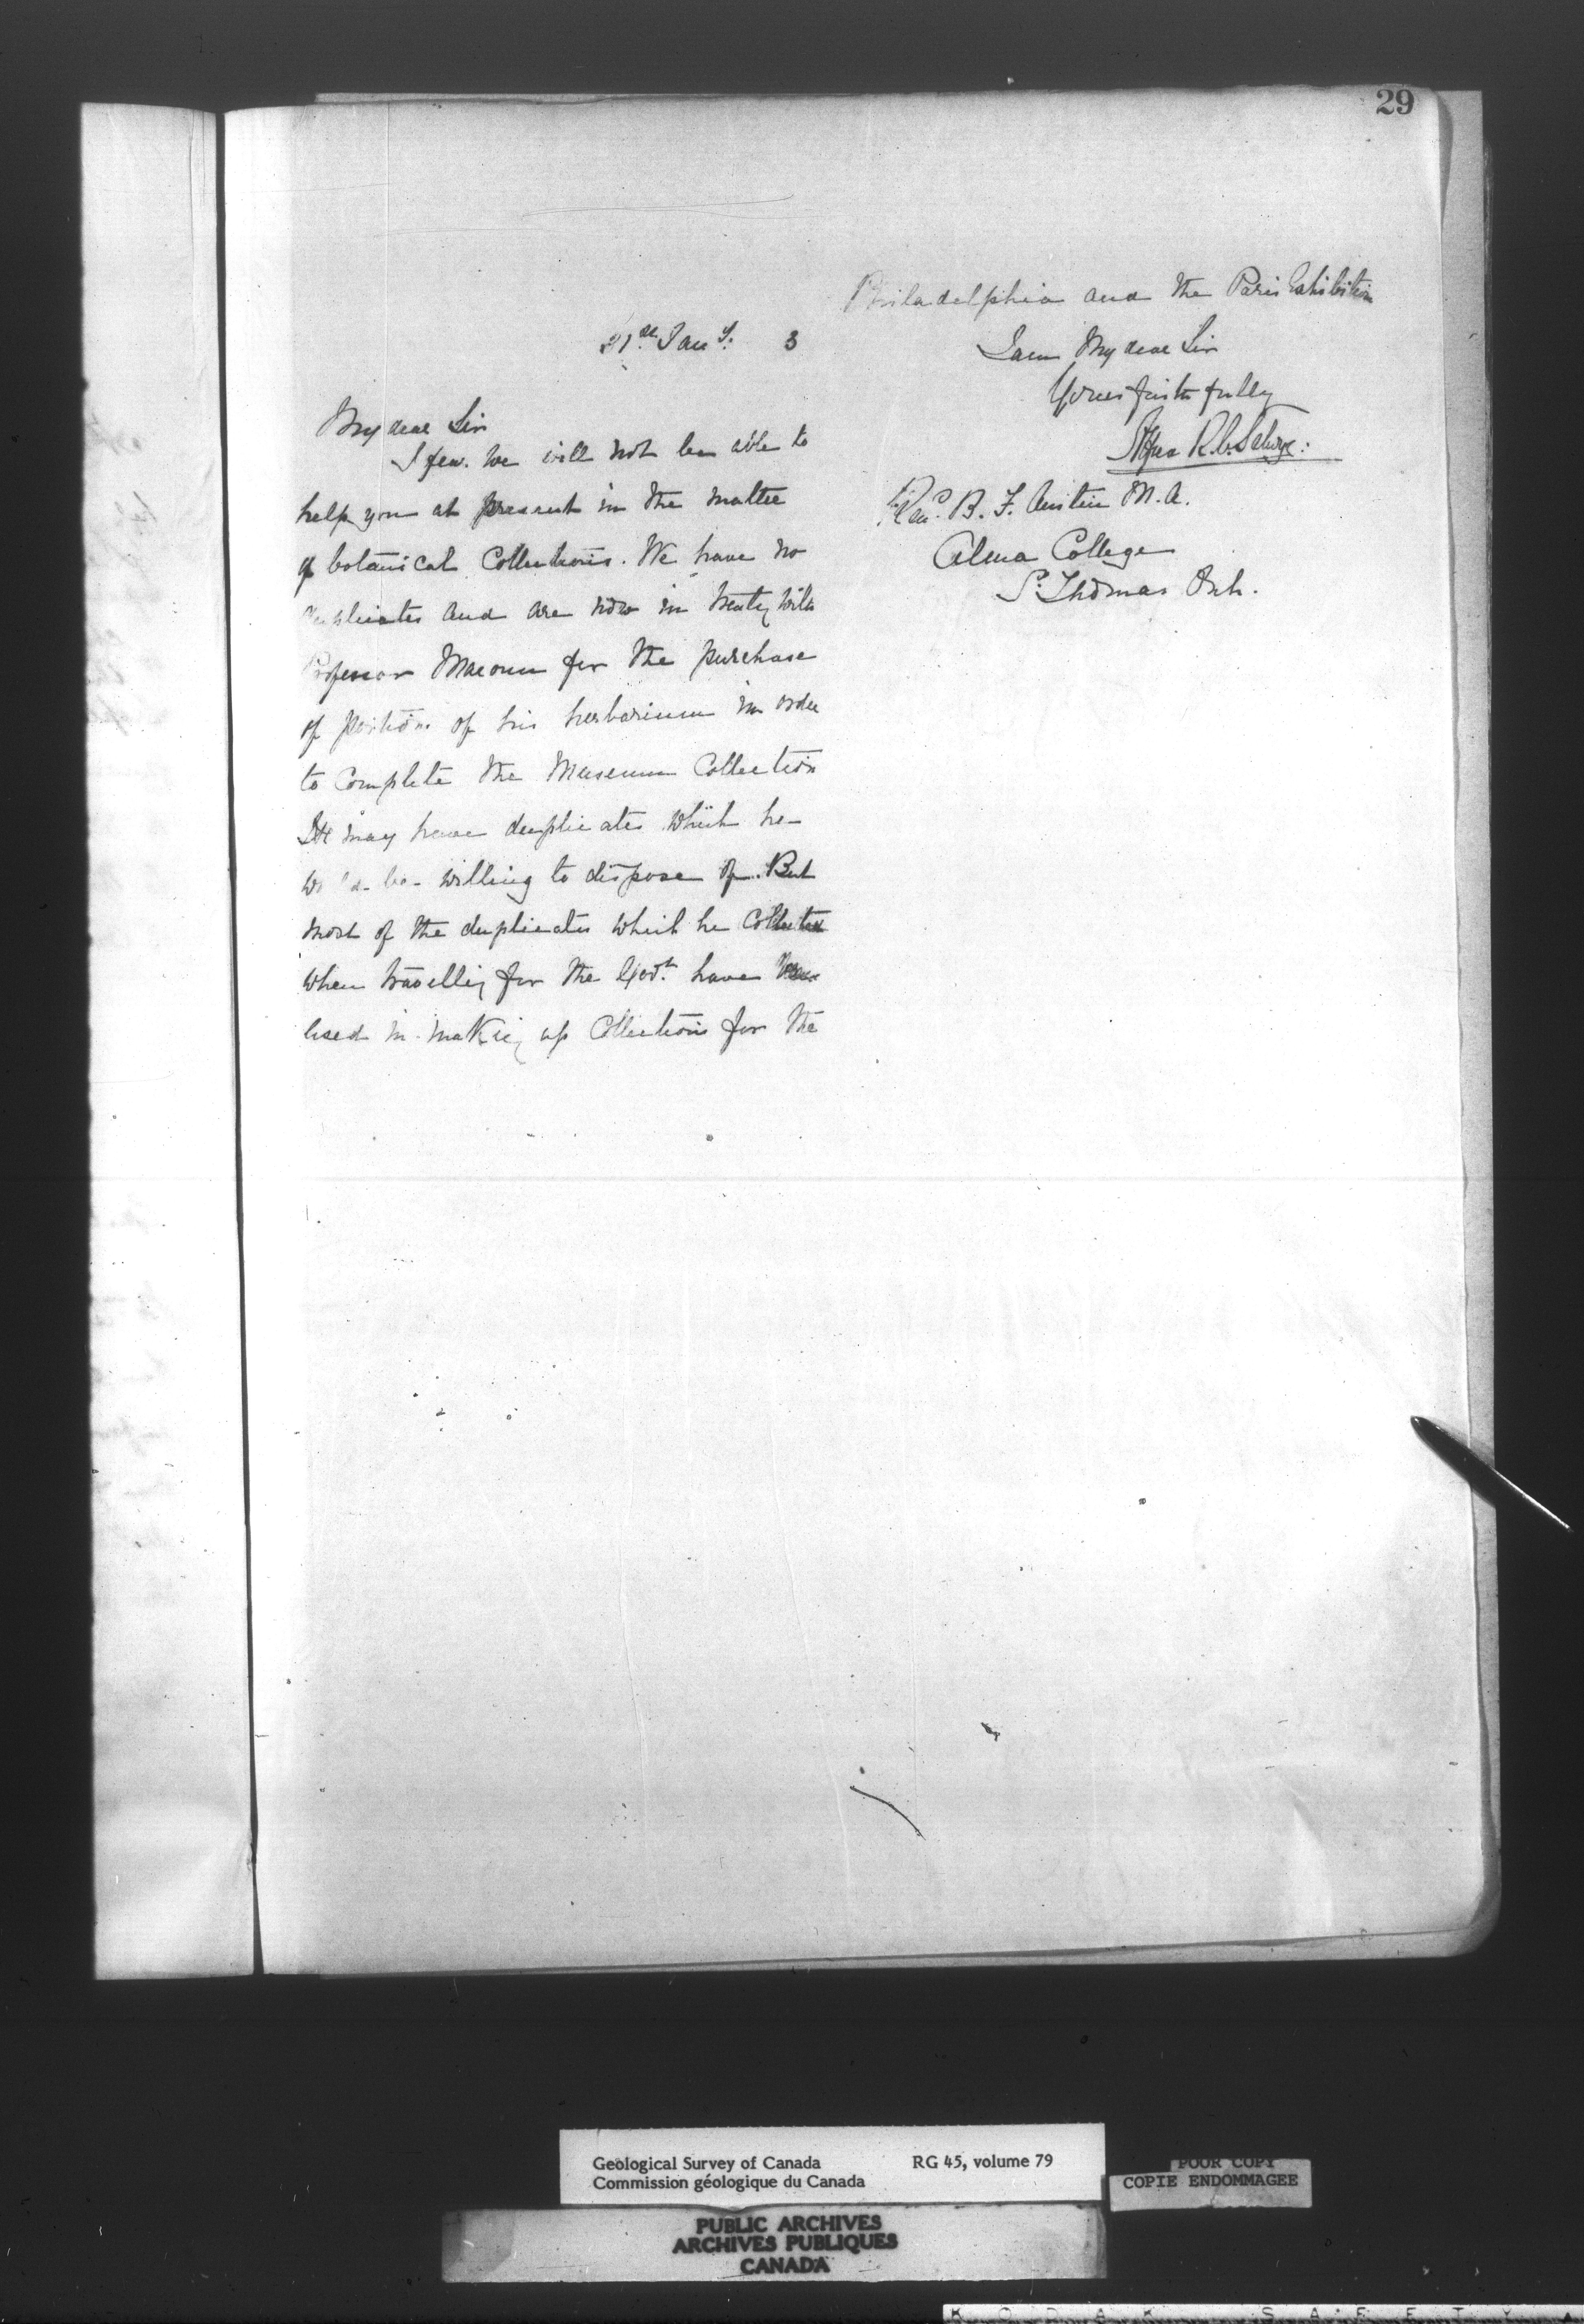 29
31st Jany. 3
My dear Sir
I fear we will not be able to
help you at present in the matter
of botanical Collections. We have no
duplicates and are now in treaty with
Professor Macoun for the purchase
of portions of his herbarium in order
to Complete the Museum Collection
He may have duplicates which he
would be willing to dispose of. But
most of the duplicates which he Collected
when travelling for the Govt. have been
used in making up Collections for the
Philadelphia and the Paris Exhibition
I am My dear Sir
Yours faithfully
Alfred R. C. Selwyn
Revd. B. F. Austin M. A.
Alma College
St. Thomas Ont.
Geological Survey of Canada RG 45, volume 79
Commission géologique du Canada
POOR COPY
COPIE ENDOMMAGEE
PUBLIC ARCHIVES
ARCHIVES PUBLIQUES
CANADA
KODAK SAFETY